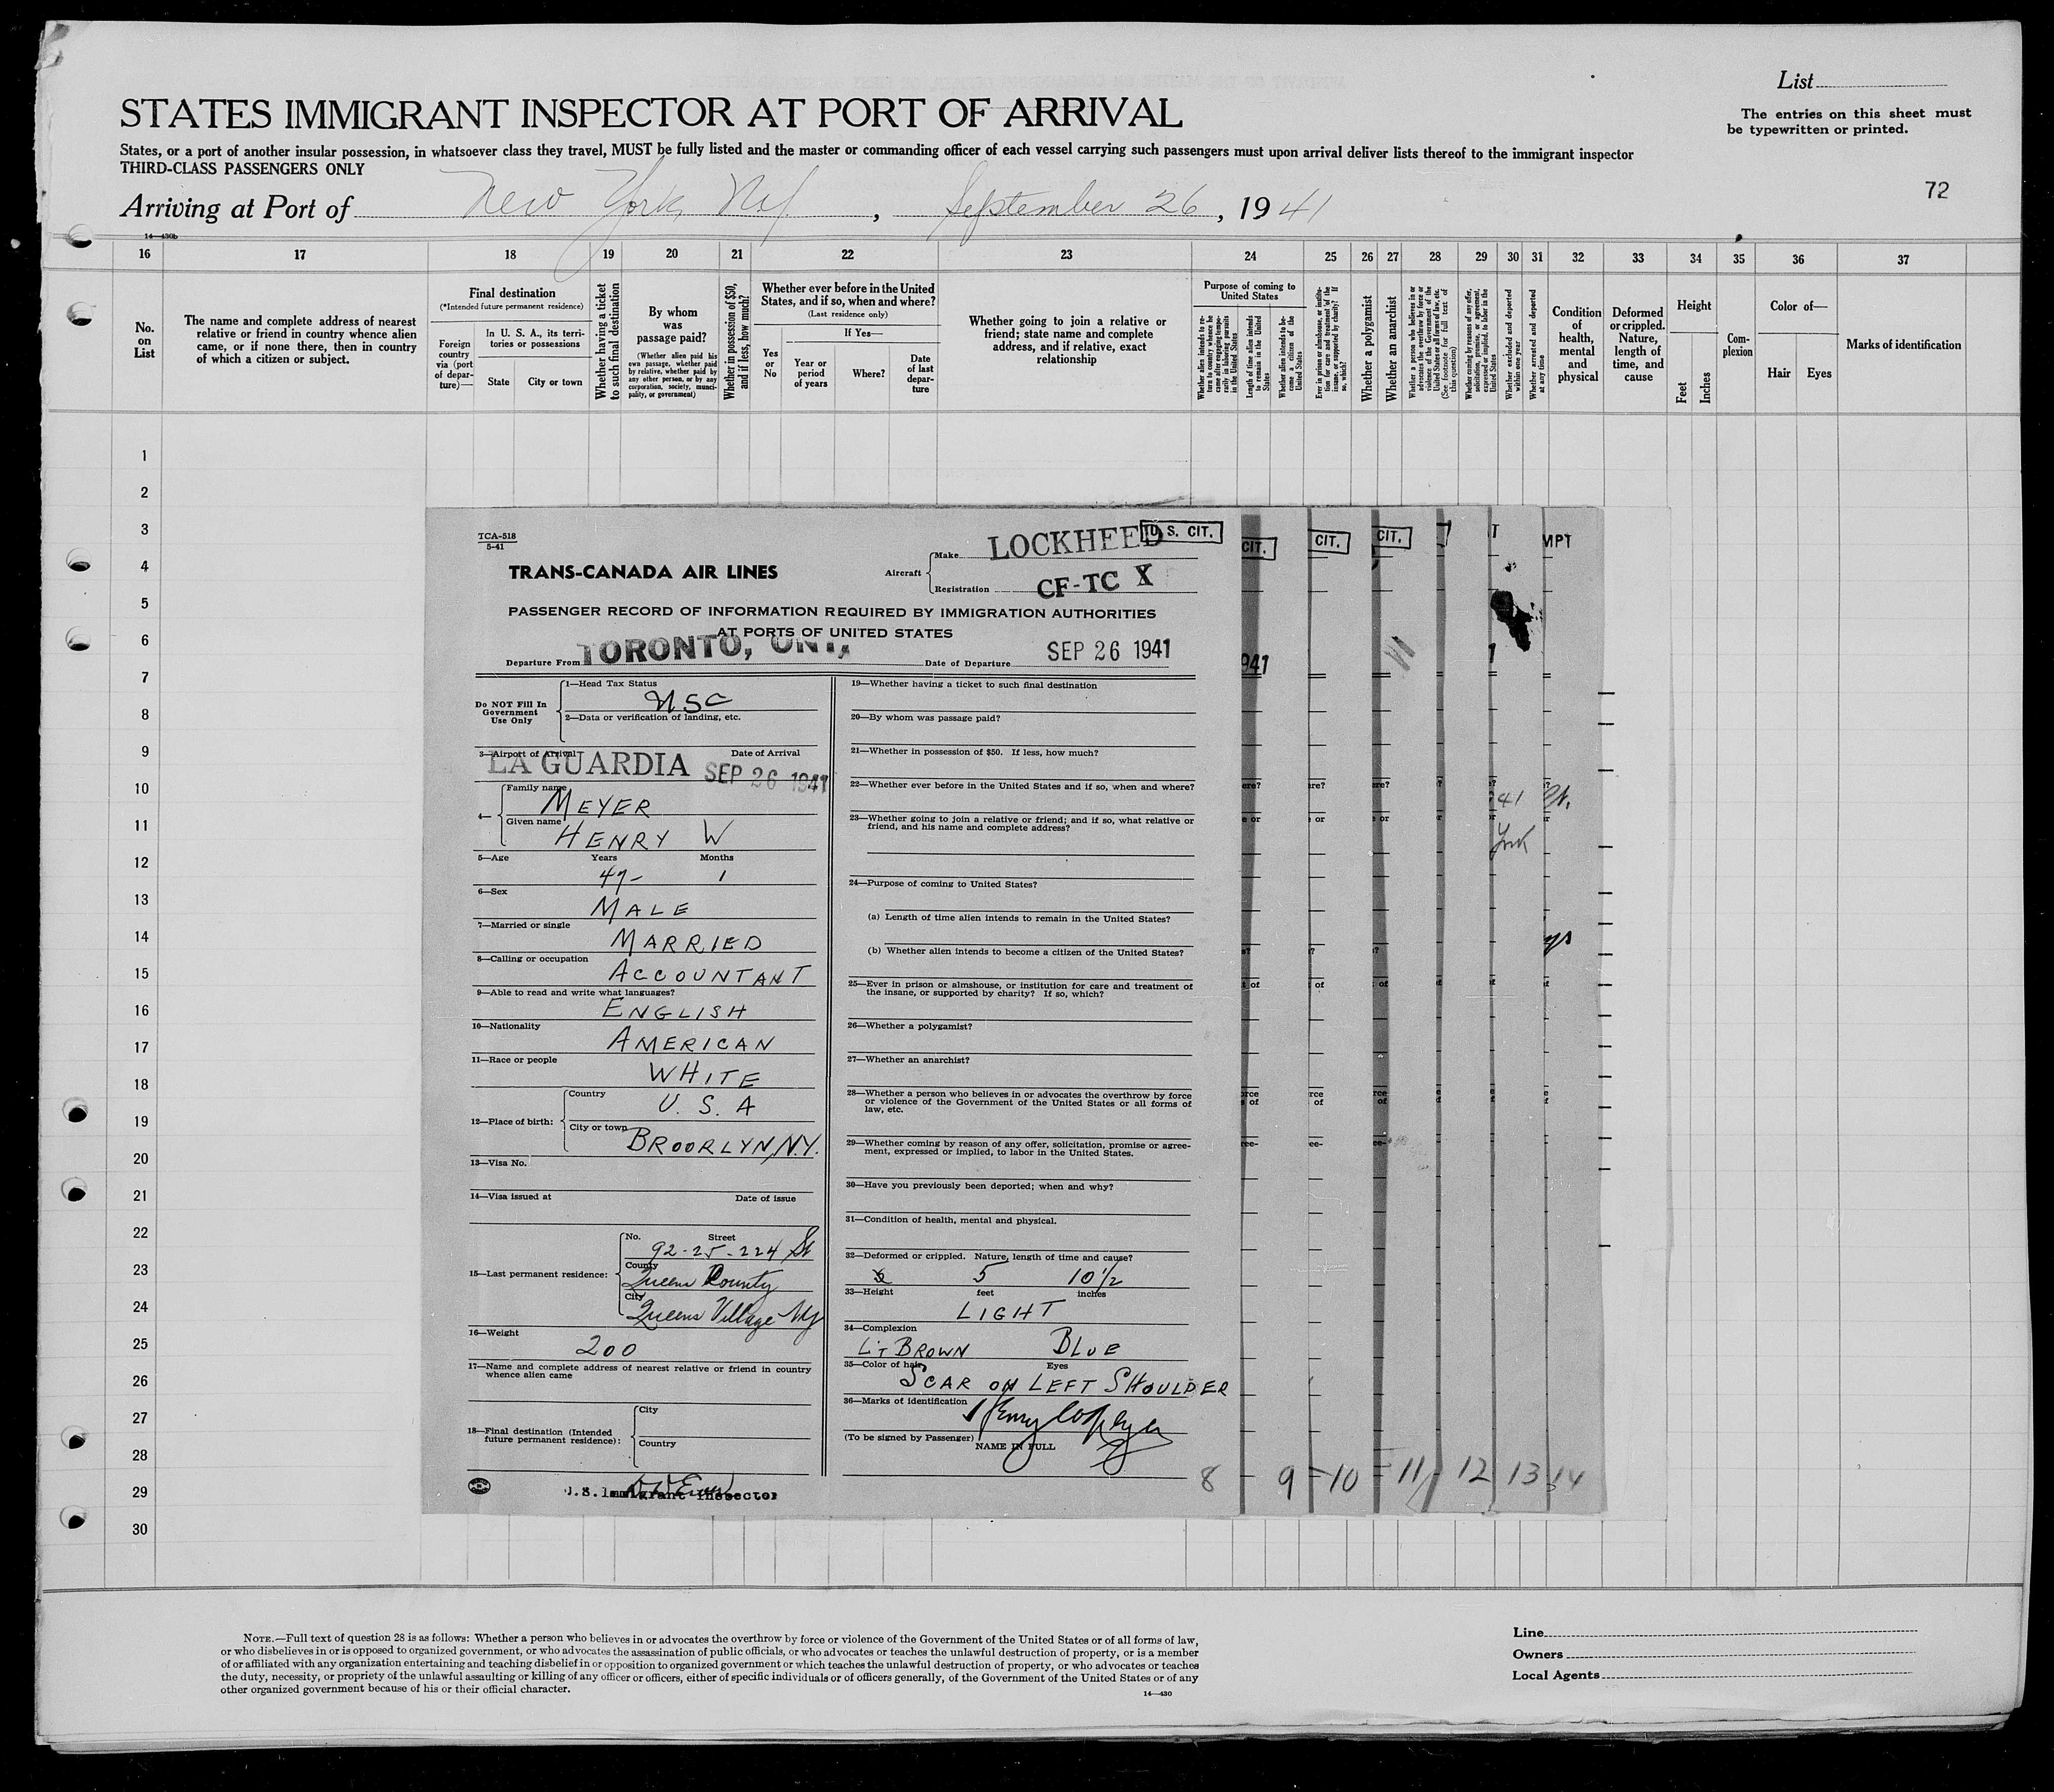 List
STATES IMMIGRANT INSPECTOR AT PORT OF ARRIVAL
The entries on this sheet must
be typewritten or printed.
States, or a port of another insular possession, in whatsoever class they travel, MUST be fully listed and the master or commanding officer of each vessel carrying such passengers must upon arrival deliver lists thereof to the immigrant inspector
THIRD-CLASS PASSENGERS ONLY
72
Arriving at Port of New York, NY, September 26, 1941
14—430b
16 17 18 19 20 21 22 23 24 25 26 27 28 29 30 31 32 33 34 35 36 37
No.
on
List
The name and complete address of nearest
relative or friend in country whence alien
came, or if none there, then in country
of which a citizen or subject.
Final destination
(*Intended future permanent residence)
Foreign
country
via (port
of depar-
ture)—
In U. S. A., its terri-
tories or possessions
State
City or town
Whether having a ticket
to such final destination
By whom
was
passage paid?
(Whether alien paid his
own passage, whether paid
by relative, whether paid by
any other person, or by any
corporation, society, munici-
pality, or government)
Whether in possession of $50,
and if less, how much?
Whether ever before in the United
States, and if so, when and where?
(Last residence only)
If Yes—
Yes
or
No
Year or
period
of years
Where?
Date
of last
depar-
ture
Whether going to join a relative or
friend; state name and complete
address, and if relative, exact
relationship
Purpose of coming to
United States
Whether alien intends to re-
turn to country whence he
came after engaging tempo-
rarily in laboring pursuits
in the United States
Length of time alien intends
to remain in the United
States
Whether alien intends to be-
come a citizen of the
United States
Ever in prison or almshouse, or institu-
tion for care and treatment of the
insane, or supported by charity? If
so, which?
Whether a polygamist
Whether an anarchist
Whether a person who believes in or
advocates the overthrow by force or
violence of the Government of the
United States or all forms of law, etc.
(See footnote for full text of
this question)
Whether coming by reason of any offer,
solicitation, promise, or agreement,
expressed or implied, to labor in the
United States
Whether excluded and deported
within one year
Whether arrested and deported
at any time
Condition
of
health,
mental
and
physical
Deformed
or crippled.
Nature,
length of
time, and
cause
Height
Feet
Inches
Com-
plexion
Color of—
Hair
Eyes
Marks of identification
1
2
3
4
5
6
7
8
9
10
11
12
13
14
15
16
17
18
19
20
21
22
23
24
25
26
27
28
29
30
TCA-518
5-41
TRANS-CANADA AIR LINES
Aircraft
Make LOCKHEED
U. S. CIT.
Registration CF-TC X
CIT.
CIT.
CIT.
MPT
PASSENGER RECORD OF INFORMATION REQUIRED BY IMMIGRATION AUTHORITIES
AT PORTS OF UNITED STATES
Departure From TORONTO, ONT. Date of Departure SEP 26 1941
941
Do NOT Fill In
Government
Use Only
1—Head Tax Status
USC
2—Data or verification of landing, etc.
3—Airport of Arrival Date of Arrival
LA GUARDIA SEP 26 1941
4— Family name
MEYER
Given name
HENRY W
5—Age Years Months
47- 1
6—Sex
MALE
7—Married or single
MARRIED
8—Calling or occupation
ACCOUNTANT
9—Able to read and write what languages?
ENGLISH
10—Nationality
AMERICAN
11—Race or people
WHITE
12—Place of birth:
Country
U. S. A
City or town
BROORLYN, N.Y.
13—Visa No.
14—Visa issued at Date of issue
15—Last permanent residence:
No. Street
92-25-224 St
County
Queens County
City
Queens Village NY
16—Weight
200
17—Name and complete address of nearest relative or friend in country
whence alien came
18—Final destination (Intended
future permanent residence):
City
Country
U.S. Immigrant Inspector
19—Whether having a ticket to such final destination
20—By whom was passage paid?
21—Whether in possession of $50. If less, how much?
22—Whether ever before in the United States and if so, when and where?
23—Whether going to join a relative or friend; and if so, what relative or
friend, and his name and complete address?
24—Purpose of coming to United States?
(a) Length of time alien intends to remain in the United States?
(b) Whether alien intends to become a citizen of the United States?
25—Ever in prison or almshouse, or institution for care and treatment of
the insane, or supported by charity? If so, which?
26—Whether a polygamist?
27—Whether an anarchist?
28—Whether a person who believes in or advocates the overthrow by force
or violence of the Government of the United States or all forms of
law, etc.
29—Whether coming by reason of any offer, solicitation, promise or agree-
ment, expressed or implied, to labor in the United States.
30—Have you previously been deported; when and why?
31—Condition of health, mental and physical.
32—Deformed or crippled. Nature, length of time and cause?
5 10 1/2
33—Height feet inches
LIGHT
34—Complexion
LT BROWN BLUE
35—Color of hair Eyes
SCAR ON LEFT SHOULDER
36—Marks of identification
Henry W Meyer
(To be signed by Passenger)
NAME IN FULL
8 - 9 - 10 - 11 - 12 13 14
41
York
NOTE.—Full text of question 28 is as follows: Whether a person who believes in or advocates the overthrow by force or violence of the Government of the United States or of all forms of law,
or who disbelieves in or is opposed to organized government, or who advocates the assassination of public officials, or who advocates or teaches the unlawful destruction of property, or is a member
of or affiliated with any organization entertaining and teaching disbelief in or opposition to organized government or which teaches the unlawful destruction of property, or who advocates or teaches
the duty, necessity, or propriety of the unlawful assaulting or killing of any officer or officers, either of specific individuals or of officers generally, of the Government of the United States or of any
other organized government because of his or their official character.
14—430
Line
Owners
Local Agents